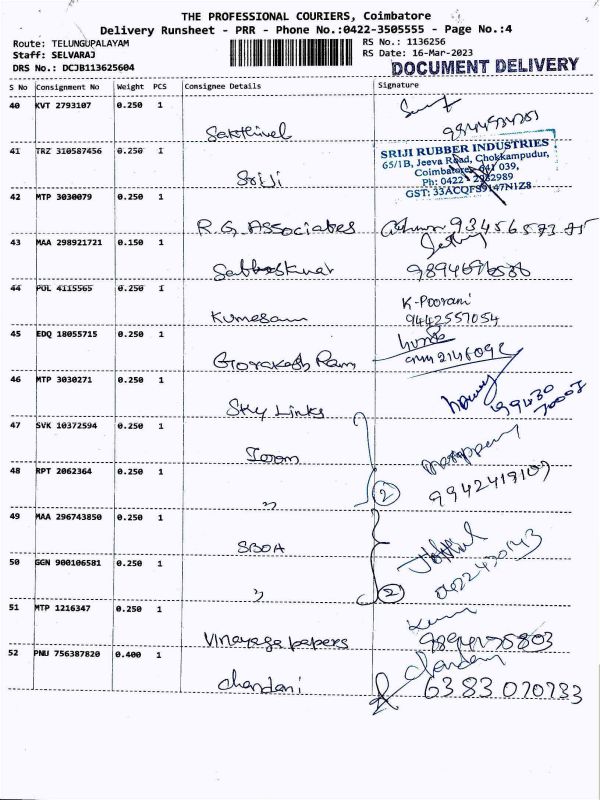 THE PROFESSIONAL COURIERS, Coimbatore
Delivery Runsheet - PRR - Phone No.:0422-3505555 - Page No.:4
Route: TELUNGUPALAYAM RS No.: 1136256
Staff: SELVARAJ RS Date: 16-Mar-2023
DRS No.: DCJB113625604 DOCUMENT DELIVERY
S No Consignment No Weight PCS Consignee Details Signature
40 KVT 2793107 0.250 1
Sakthivel
41 TRZ 310587456 0.250 1 SRIJI RUBBER INDUSTRIES
65/1B, Jeeva Road, Chokkampudur,
Coimbatore 641 039,
Sriji Ph: 0422
GST: 33ACQFS9147N1Z8
42 MTP 3030079 0.250 1
R.G. Associates
43 MAA 298921721 0.150 1
44 POL 4115565 0.250 1 K-Poorani
Kumesan 9442557054
45 EDQ 18055715 0.250 1
Ram
46 MTP 3030271 0.250 1
Sky Links
47 SVK 10372594 0.250 1
48 RPT 2062364 0.250 1
" 2 9942419107
49 MAA 296743850 0.250 1
SBOA
50 GGN 900106581 0.250 1 0422430143
" 2
51 MTP 1216347 0.250 1
Vinayaga papers
52 PNU 756387820 0.400 1 Chandani
Chandani 6383070733